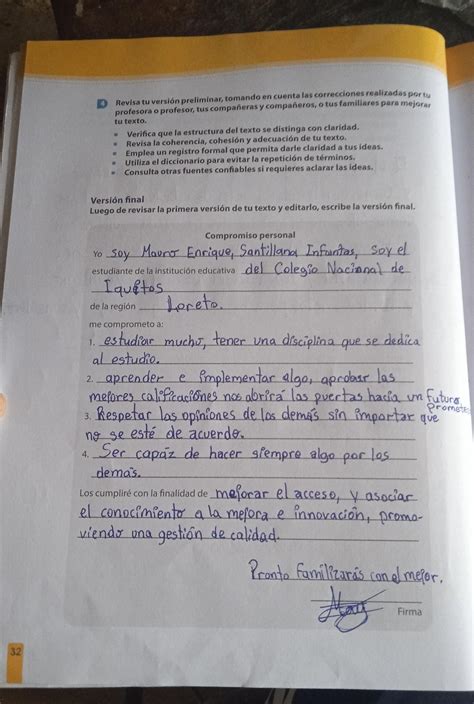 Revisa tu versión preliminar, tomando en cuenta las correcciones realizadas por tu
profesora o profesor, tus compañeras y compañeros, o tus familiares para mejorar
tu texto.
Verifica que la estructura del texto se distinga con claridad.
Revisa la coherencia, cohesión y adecuación de tu texto.
Emplea un registro formal que permita darle claridad a tus ideas.
Utiliza el diccionario para evitar la repetición de términos.
Consulta otras fuentes confiables si requieres aclarar las ideas.
Versión final
Luego de revisar la primera versión de tu texto y editarlo, escribe la versión final.
Compromiso personal
Yo soy Mauro Enrique, Santillana Infantas, soy el
estudiante de la institución educativa del Colegio Nacional de
Iquitos
de la región Loreto.
me comprometo a:
1. estudiar mucho, tener una disciplina que se dedica
al estudio.
2. aprender e implementar algo, aprobar las
mejores calificaciónes nos abrirá las puertas hacia un futuro
Promete
3. Respetar las opiniones de los demás sin importar que
no se esté de acuerdo.
4. Ser capaz de hacer siempre algo por los
demás.
Los cumpliré con la finalidad de mejorar el acceso, y asociar
el conocimiento a la mejora e innovación, promo-
viendo una gestión de calidad.
Pronto familizarás con el mejor.
Firma
32